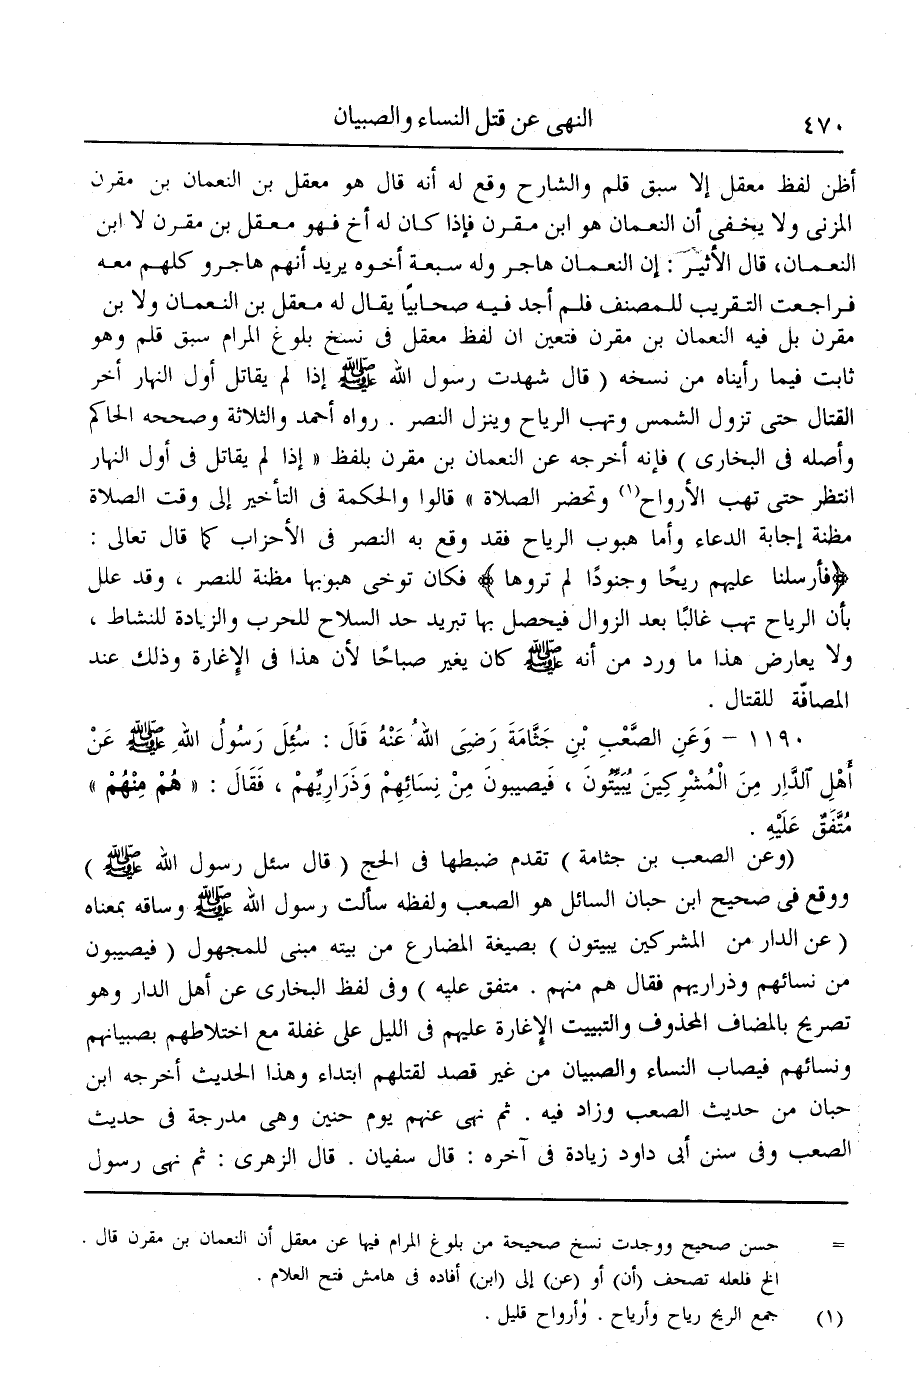 ٤٧٠ النهى عن قتل النساء والصبيان
أظن لفظ معقل إلا سبق قلم والشارح وقع له أنه قال هو معقل بن النعمان بن مقرن
المزنى ولا يخفى أن النعمان هو ابن مقرن فإذا كان له أخ فهو معقل بن مقرن لا ابن
النعمان، قال الأثير : إن النعمان هاجر وله سبعة أخوه يريد أنهم هاجرو كلهم معه
فراجعت التقريب للمصنف فلم أجد فيه صحابيًا يقال له معقل بن النعمان ولا بن
مقرن بل فيه النعمان بن مقرن فتعين ان لفظ معقل فى نسخ بلوغ المرام سبق قلم وهو
ثابت فيما رأيناه من نسخه ( قال شهدت رسول الله ﷺ إذا لم يقاتل أول النهار أخر
القتال حتى تزول الشمس وتهب الرياح وينزل النصر . رواه أحمد والثلاثة وصححه الحاكم
وأصله فى البخارى ) فإنه أخرجه عن النعمان بن مقرن بلفظ « إذا لم يقاتل فى أول النهار
انتظر حتى تهب الأرواح(١) وتحضر الصلاة » قالوا والحكمة فى التأخير إلى وقت الصلاة
مظنة إجابة الدعاء وأما هبوب الرياح فقد وقع به النصر فى الأحزاب كما قال تعالى :
﴿فأرسلنا عليهم ريحًا وجنودًا لم تروها ﴾ فكان توخى هبوبها مظنة للنصر ، وقد علل
بأن الرياح تهب غالبًا بعد الزوال فيحصل بها تبريد حد السلاح للحرب والزيادة للنشاط ،
ولا يعارض هذا ما ورد من أنه ﷺ كان يغير صباحًا لأن هذا فى الإغارة وذلك عند
المصافّة للقتال .
١١٩٠ – وَعَنِ الصَّعْبِ بْنِ جَثَّامَةَ رَضِىَ اللهُ عَنْهُ قَالَ : سُئِلَ رَسُولُ اللهِ ﷺ عَنْ
أَهْلِ الدَّارِ مِنَ الْمُشْرِكِينَ يُبَيَّتُونَ ، فَيصِيبونَ مِنْ نِسَائِهِمْ وَذَرَارِيِّهِمْ ، فَقَالَ : « هُمْ مِنْهُمْ »
مُتَّفَقٌ عَلَيْهِ .
(وعن الصعب بن جثامة ) تقدم ضبطها فى الحج ( قال سئل رسول الله ﷺ )
ووقع فى صحيح ابن حبان السائل هو الصعب ولفظه سألت رسول الله ﷺ وساقه بمعناه
( عن الدار من المشركين يبيتون ) بصيغة المضارع من بيته مبنى للمجهول ( فيصيبون
من نسائهم وذراريهم فقال هم منهم . متفق عليه ) وفى لفظ البخارى عن أهل الدار وهو
تصريح بالمضاف المحذوف والتبييت الإغارة عليهم فى الليل على غفلة مع اختلاطهم بصبيانهم
ونسائهم فيصاب النساء والصبيان من غير قصد لقتلهم ابتداء وهذا الحديث أخرجه ابن
حبان من حديث الصعب وزاد فيه . ثم نهى عنهم يوم حنين وهى مدرجة فى حديث
الصعب وفى سنن أبى داود زيادة فى آخره : قال سفيان . قال الزهرى : ثم نهى رسول
= حسن صحيح ووجدت نسخ صحيحة من بلوغ المرام فيها عن معقل أن النعمان بن مقرن قال .
الخ فلعله تصحف (أن) أو (عن) إلى (ابن) أفاده فى هامش فتح العلام .
(١) جمع الريح رياح وأرياح . وأرواح قليل .